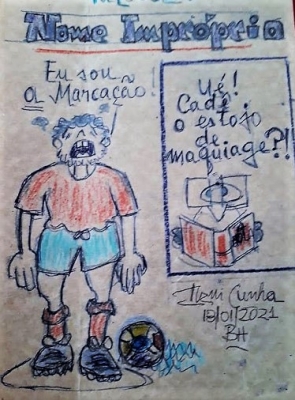 Nome Impróprio
Eu sou
a Marcação!
Ué!
Cadê
o estojo
de
maquiage?!!
Cunha
18/01/2021
BH